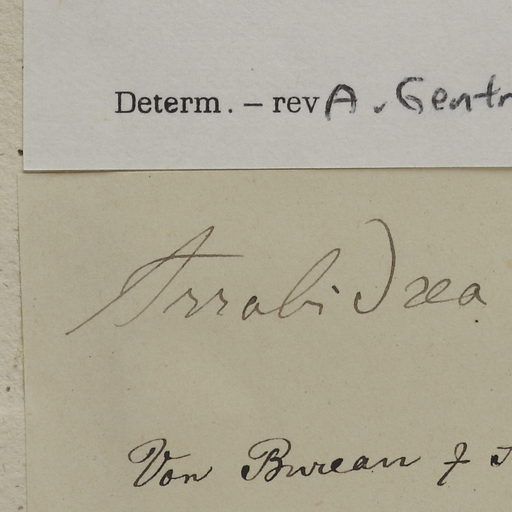 Determ. – rev A. Gentr
Arrabidaea
Von Bureau